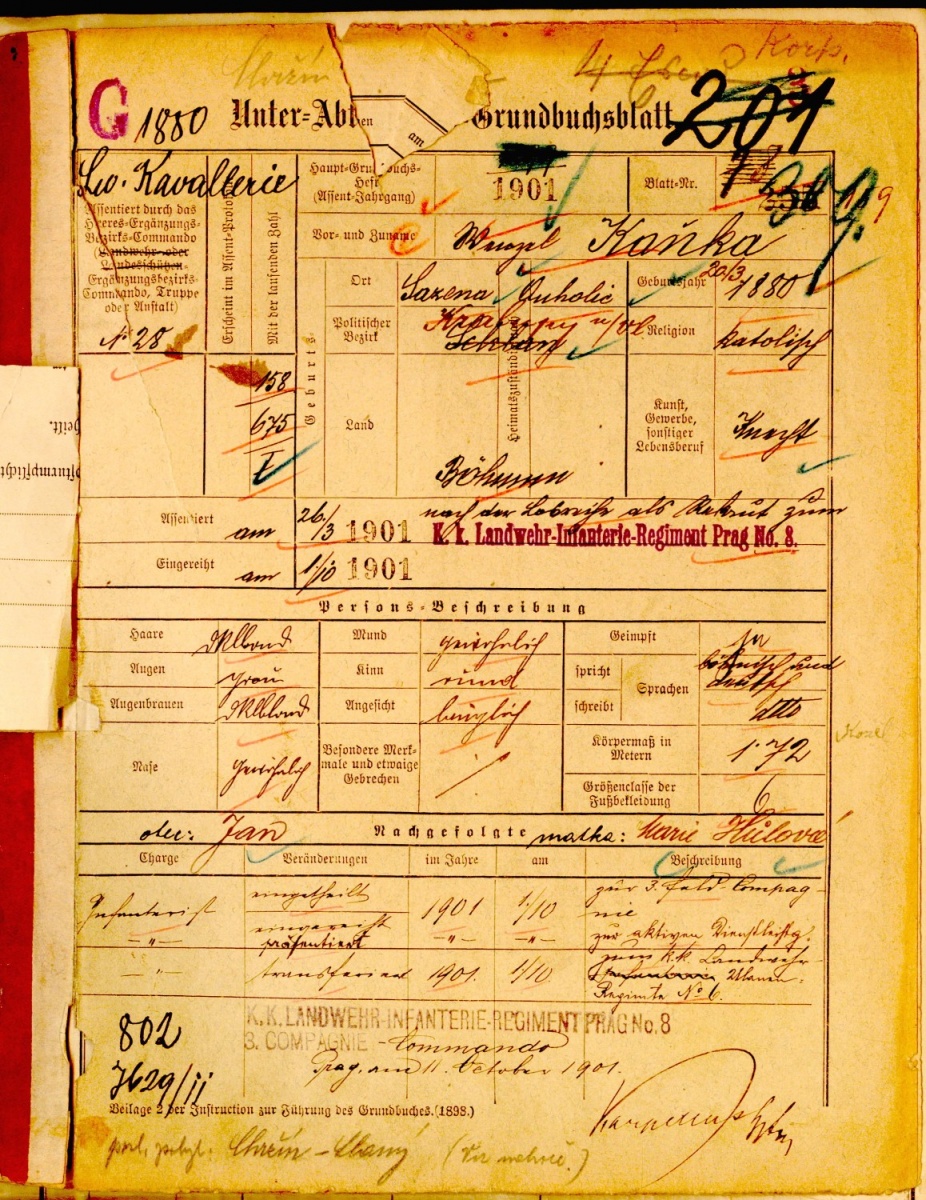 Korp.
G 1880
Unter-Abt Grundbuchsblatt
en
am
201
Lw. Kavallerie
Haupt-Grundbuchs-
Heft
(Assent-Jahrgang)
1901
Blatt-Nr.
Assentiert durch das
Heeres-Ergänzungs-
Bezirks-Commando
(Landwehr- oder
Landesschützen-
Ergänzungsbezirks-
Commando, Truppe
oder Anstalt)
№ 28
Erscheint im Assent-Protok
Mit der laufenden Zahl
158
675
I
Vor- und Zuname
Wenzel Kaňka
Geburts
Ort
Sazena
Politischer
Bezirk
Land
Heimatszuständig
Böhmen
Geburtsjahr
20/3 1880
Religion
katolisch
Kunst,
Gewerbe,
sonstiger
Lebensberuf
Knecht
Assentiert am 26./3 1901 nach der Losreihe als Rekrut zum
K. k. Landwehr-Infanterie-Regiment Prag No. 8.
Eingereiht am 1/10 1901
Persons-Beschreibung
Haare dklblond
Mund gewöhnlich
Geimpft ja
Augen grau
Kinn rund
spricht
schreibt
Sprachen
böhmisch und
deutsch
dtto
Augenbrauen dklblond
Angesicht länglich
Nase gewöhnlich
Besondere Merk-
male und etwaige
Gebrechen
/
Körpermaß in
Metern
1·72
Größenclasse der
Fußbekleidung
6
otec: Jan Nachgefolgte matka: Marie Hůlová
Charge Veränderungen im Jahre am Beschreibung
Infanterist eingetheilt 1901 1/10 zur 3. Feld-Compag-
nie
-"- eingereiht
präsentiert -"- -"- zur aktiven Dienstleistg.
-"- transferiert 1901. 1/10 zum k.k. Landwehr-
Ulanen-
Regimte № 6.
K.K. LANDWEHR-INFANTERIE-REGIMENT PRAG No. 8
3. COMPAGNIE - Commando
Prag, am 11. October 1901.
802
7629/II
Beilage 2 der Instruction zur Führung des Grundbuches. (1898.)